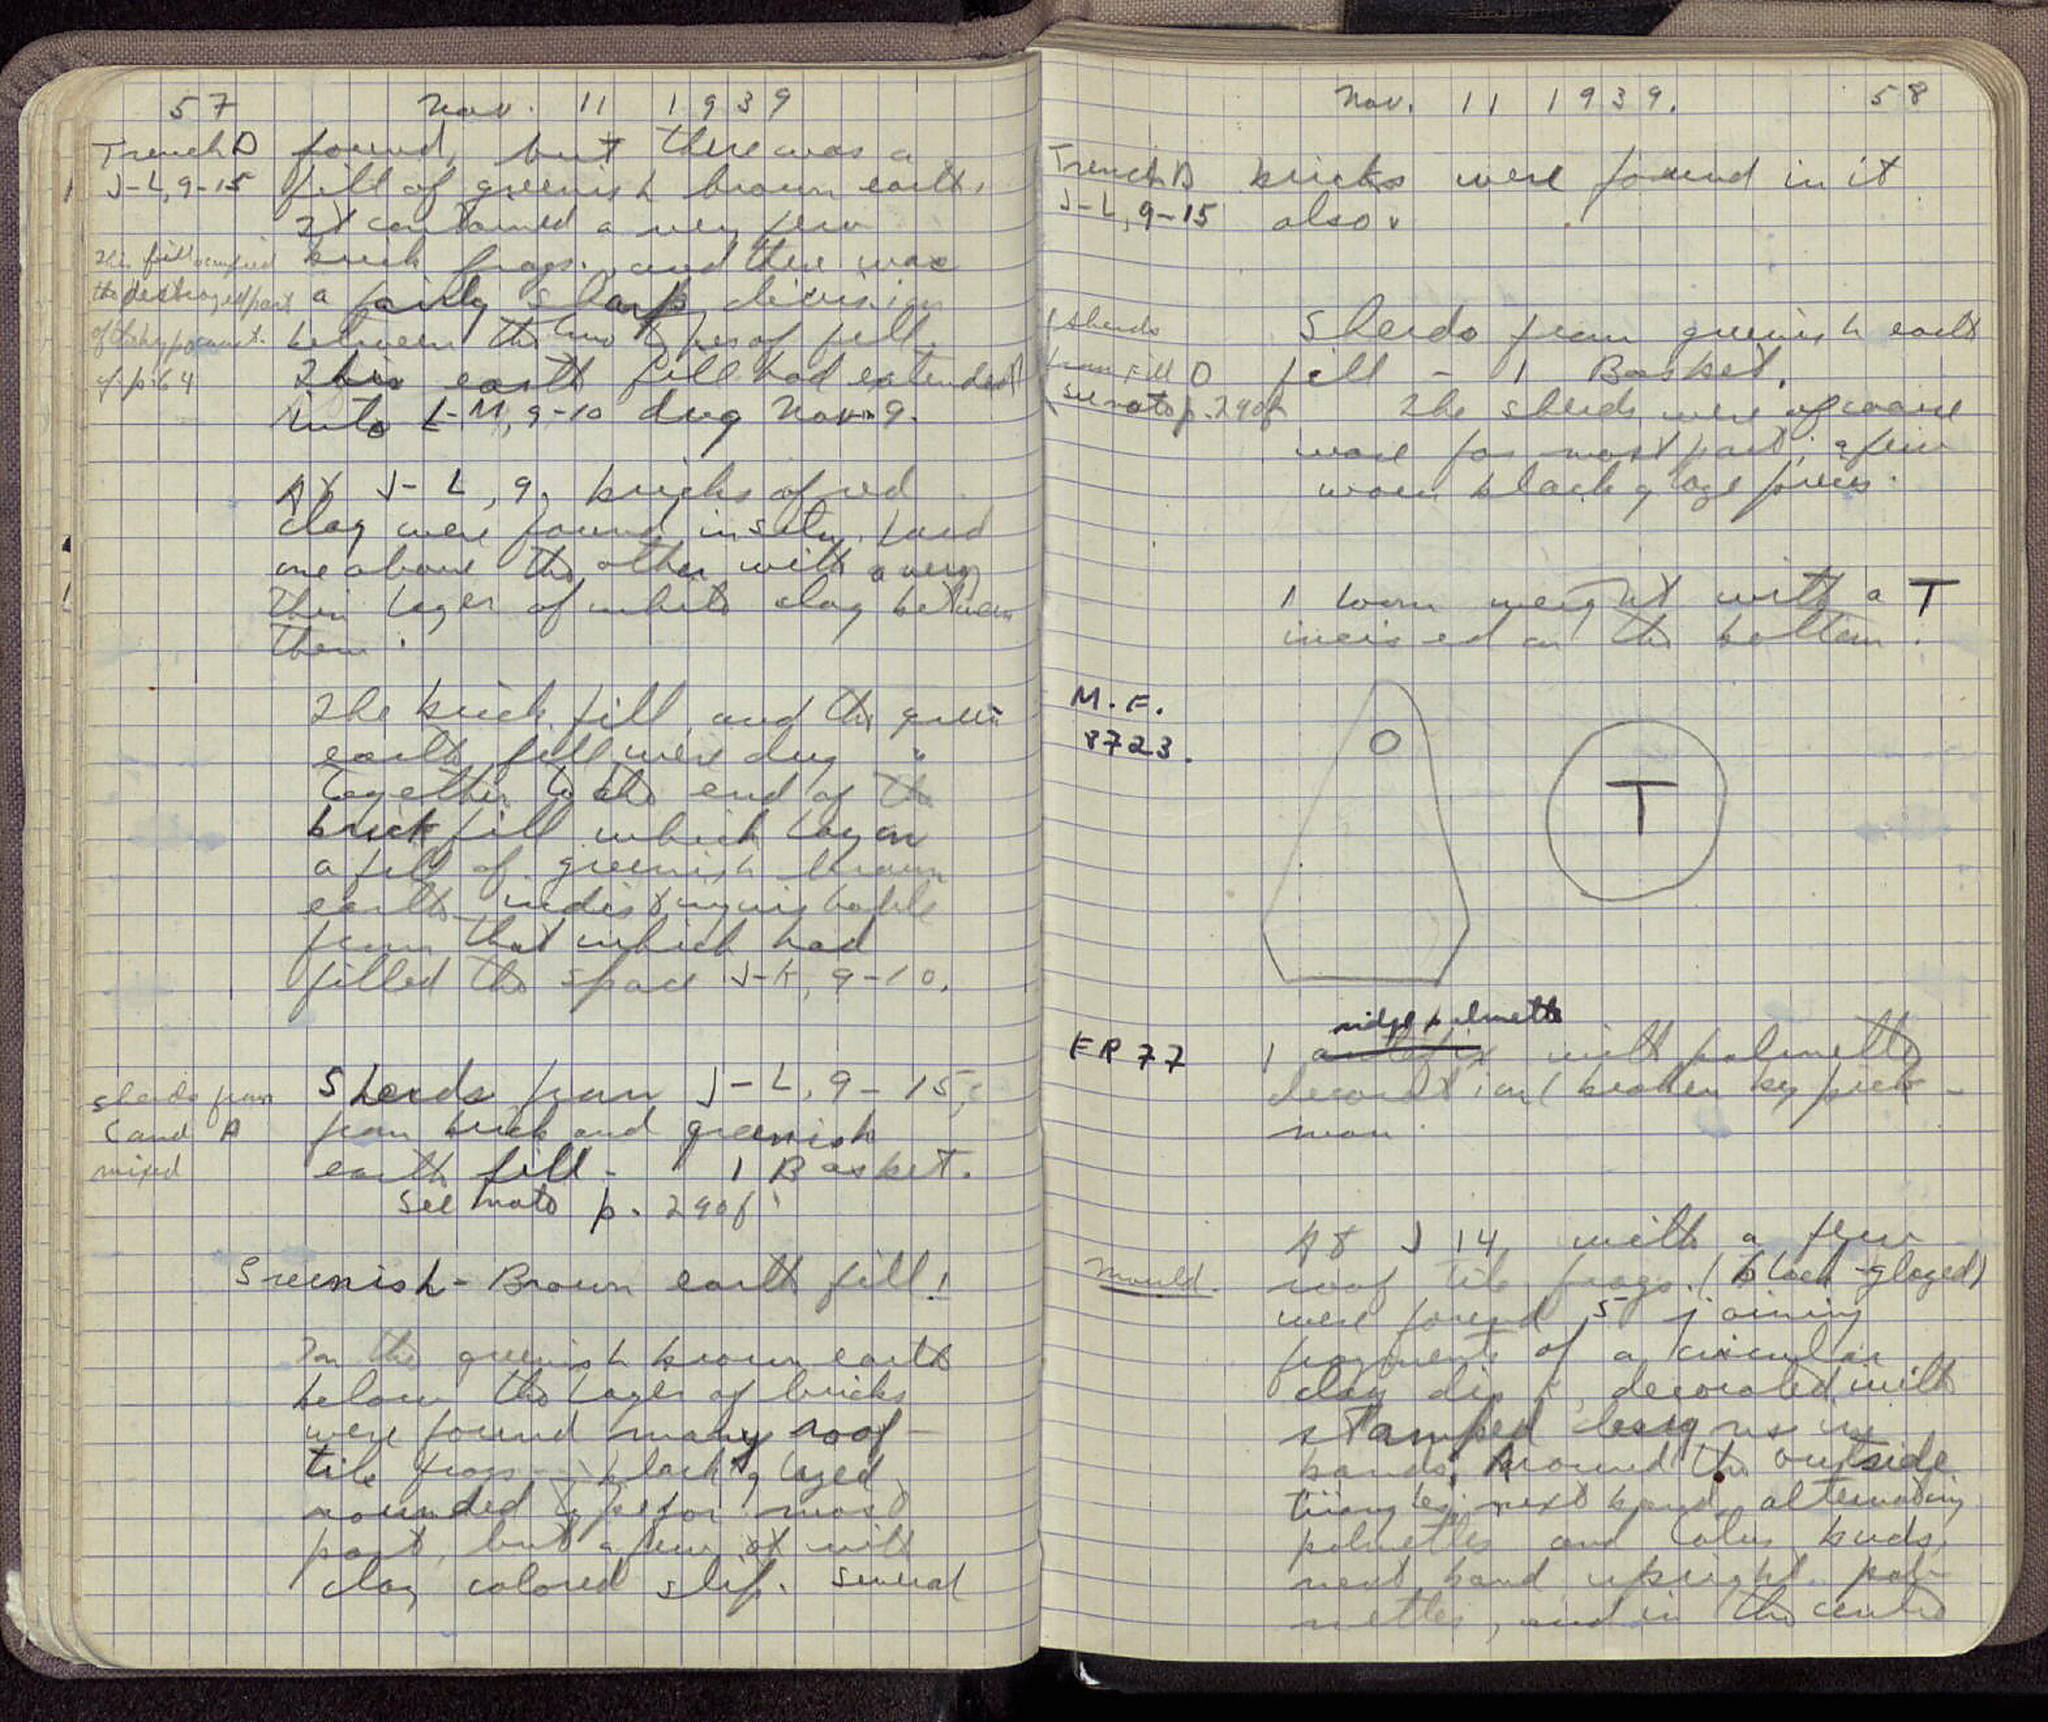 57 Nov. 11 1939
Trench D
J-L, 9-15
This fill occupied
the destroyed part
of the hypocaust.
cf. p. 64
found, but there was a
fill of greenish brown earth.
It contained a very few
brick frags. and there was
a fairly sharp division
between the two types of fill.
This earth fill had extended
into L-M, 9-10 dug Nov. 9.
At J-L, 9, bricks of red
clay were found in situ, laid
one above the other with a very
thin layer of white clay between
them.
The brick fill and the green
earth fill were dug
together to the end of the
brick fill which lay on
a fill of greenish brown
earth indistinguishable
from that which had
filled the space J-K, 9-10.
Sherds from
C and D
mixed
Sherds from J-L, 9-15,
from brick and greenish
earth fill - 1 Basket.
See note p. 290f
Greenish-Brown earth fill!
In the greenish brown earth
below the layer of bricks
were found many roof-
tile frags - black glazed
rounded type for most
part, but a few of with
clay colored slip. Several
Nov. 11 1939. 58
Trench D
J-L, 9-15
bricks were found in it
also.
Sherds
from fill D
see note p. 290f
Sherds from greenish earth
fill - 1 Basket.
The sherds were of coarse
ware for most part; a few
worn black glaze pieces.
1 loom weight with a T
incised on the bottom.
M.F.
8723.
T
FR 77
ridge palmette
1 antefix with palmette
decoration (broken by pick-
man.
Mould.
At J 14 with a few
roof tile frags. (black-glazed)
were found 5 joining
fragments of a circular
clay disc, decorated with
stamped designs in
bands. Around the outside
triangles; next band, alternating
palmettes and lotus buds,
next band upright pal-
mettes, and in the centre